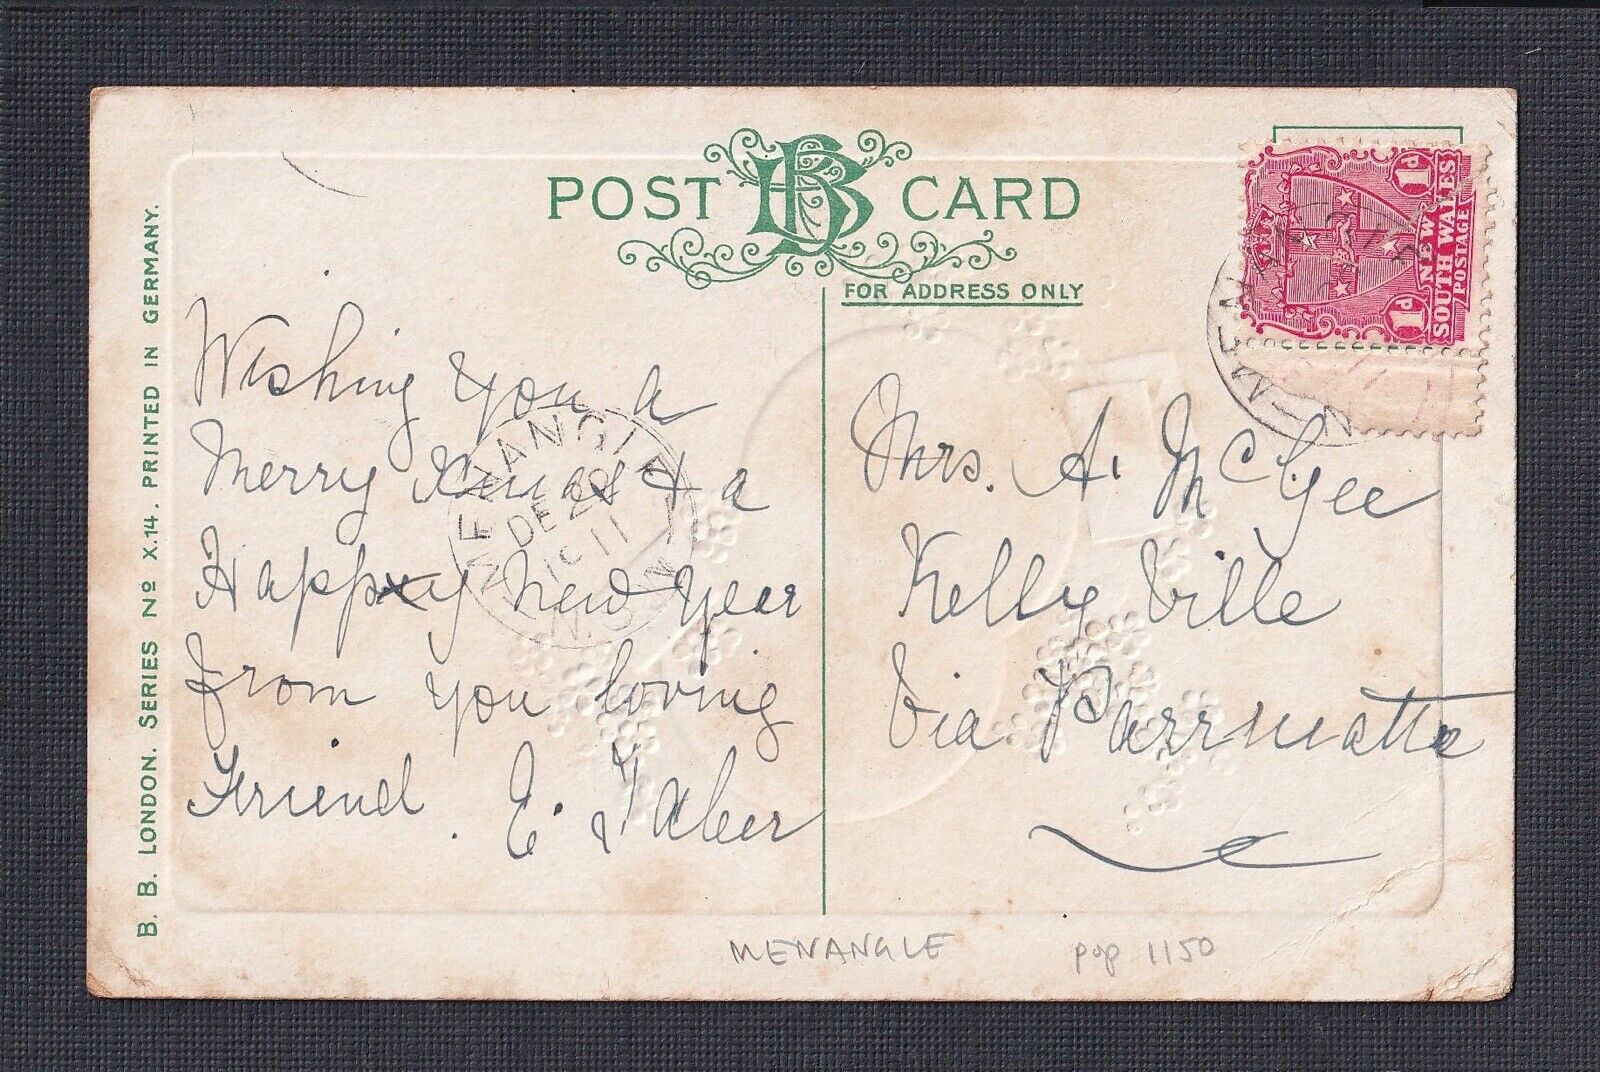 POST CARD
FOR ADDRESS ONLY
1d
1d
NEW
SOUTH WALES
POSTAGE
MENANGLE
DE 20
11
N.S.W
Wishing you a
Merry Xmas & a
Happy New Year
from you loving
Friend. E. Taber
Mrs. A. McGee
Kelly Ville
Via Parrmatta
B. B. LONDON. SERIES No X.14. PRINTED IN GERMANY.
MENANGLE
pop 1150